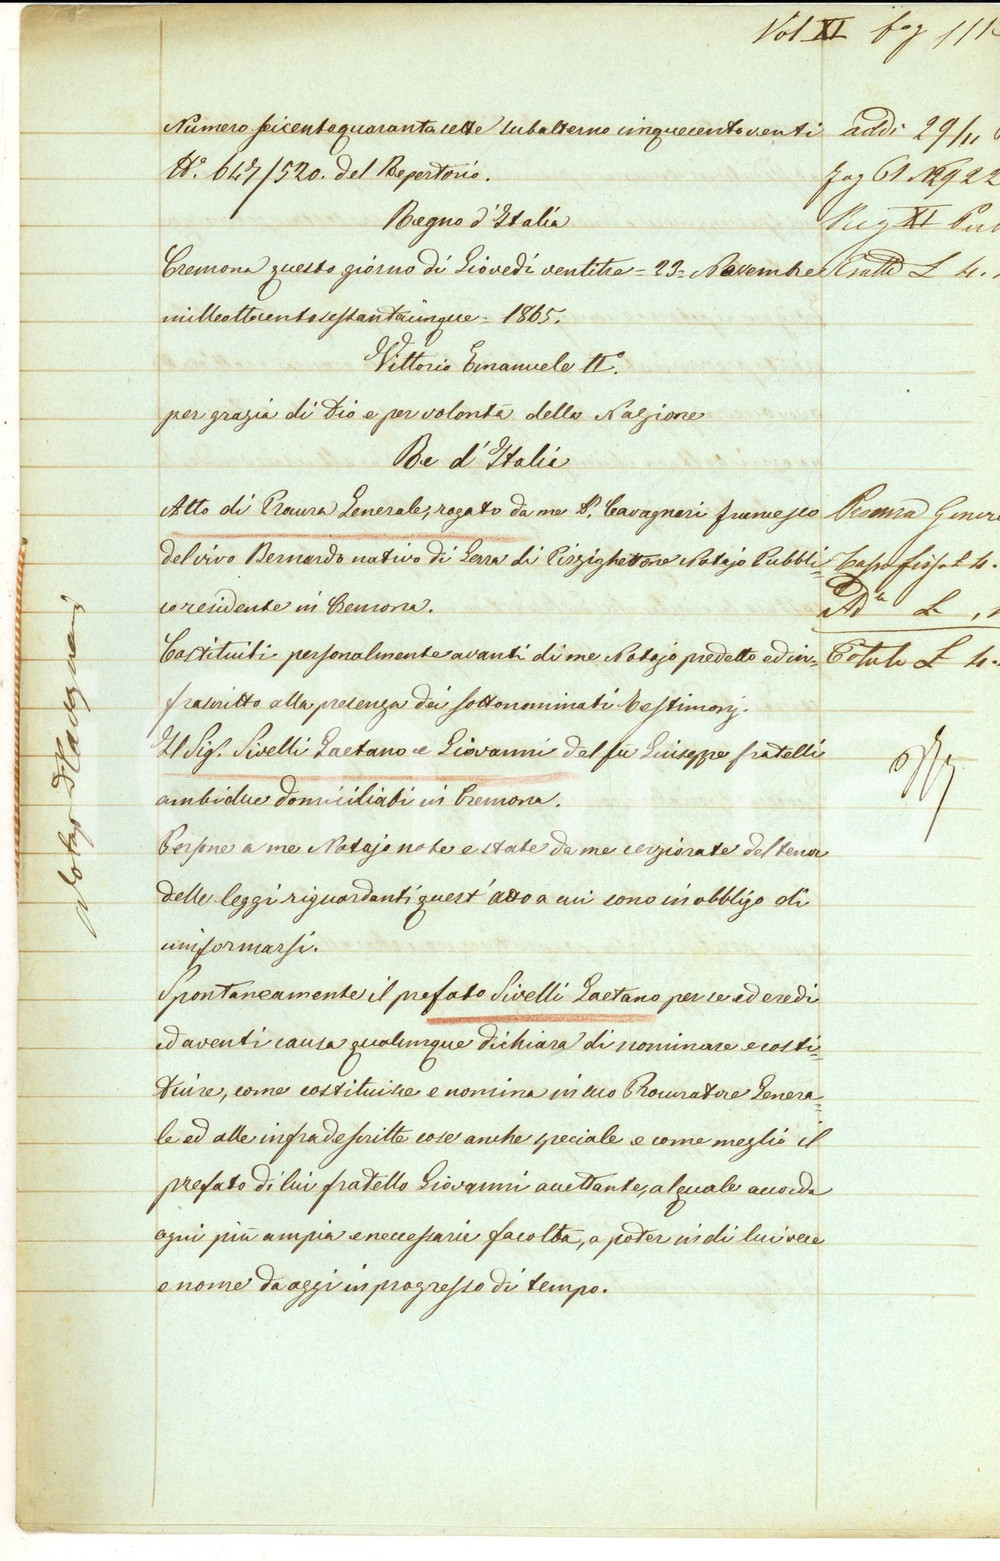 Vol XI fog 111
Numero seicentoquarantasette subalterno cinquecentoventi
N.° 647/520. del Repertorio.
Regno d'Italia
Cremona questo giorno di Giovedì ventitre = 23 = Novembre
milleottocentosessantacinque = 1865.
Vittorio Emanuele II°.
per grazia di Dio e per volontà della Nazione
Re d'Italia
Atto di Procura Generale, rogato da me D. Cavagnari Francesco
del vivo Bernardo nativo di Gerra di Pizzighettone Notajo Pubbli-
co residente in Cremona.
Costituiti personalmente avanti di me Notajo predetto ed in-
frascritto alla presenza dei sottonominati Testimonj.
Il Sig.r Sivelli Gaetano e Giovanni del fu Giuseppe fratelli
ambidue domiciliati in Cremona.
Persone a me Notajo note e state da me cerziorate del tenor
delle leggi riguardanti quest'atto a cui sono in obbligo di
uniformarsi.
Spontaneamente il prefato Sivelli Gaetano per se ed eredi
ed aventi causa qualunque dichiara di nominare e costi-
tuire, come costituisce e nomina in suo Procuratore Genera-
le ed alle infradescritte cose anche speciale e come meglio il
prefato di lui fratello Giovanni accettante, al quale accorda
ogni più ampia e necessaria facoltà, a poter in di lui vece
e nome da oggi in progresso di tempo.
addi 29/11
fog 61 N 922
Reg XI Pub
Esatte L 4.
Procura Gener
Tassa fissa L 4.
Ad.le L
Totale L 4.
Notajo D Cavagnari